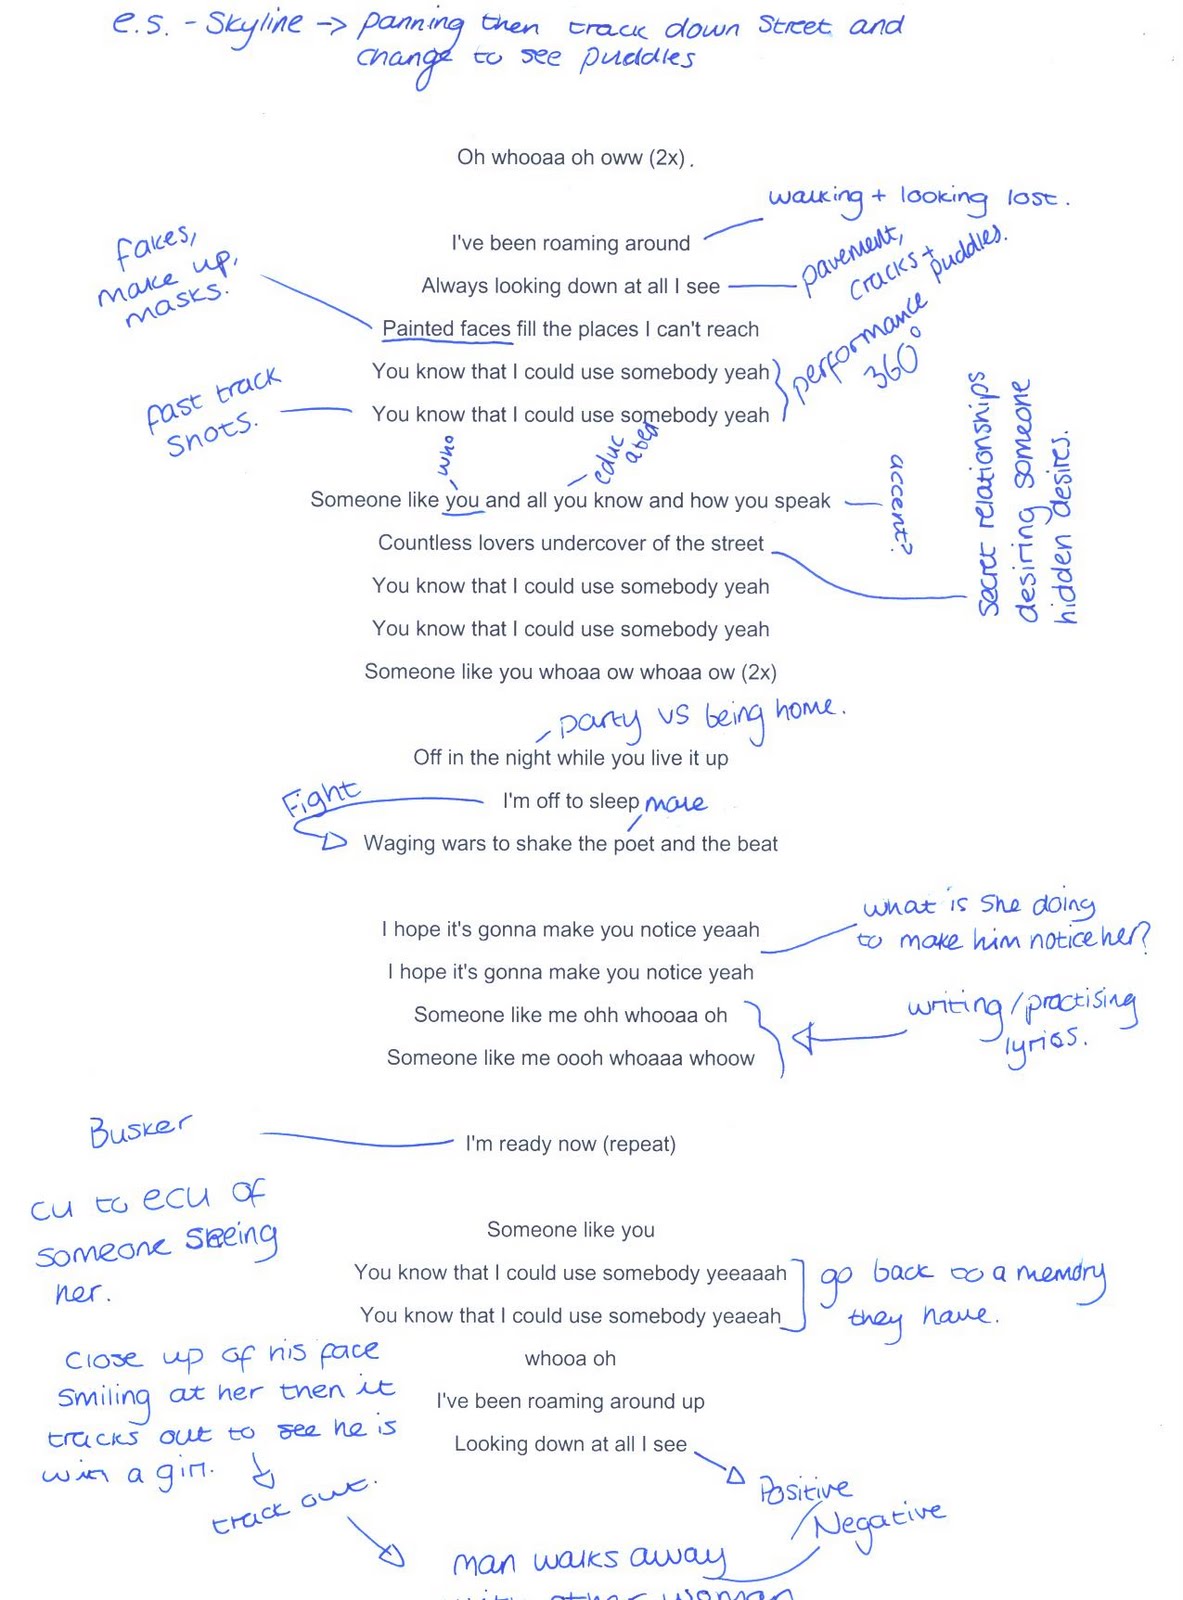 e.s. - Skyline -> panning then track down street and
change to see puddles
Oh whooaa oh oww (2x) .
walking + looking lost.
fakes,
make up,
masks.
I've been roaming around
pavement,
cracks +
puddles.
Always looking down at all I see
Painted faces fill the places I can't reach
performance
360°
You know that I could use somebody yeah
fast track
shots.
You know that I could use somebody yeah
who
educ
ated
Someone like you and all you know and how you speak
accent?
Secret relationships
desiring someone
hidden desires.
Countless lovers undercover of the street
You know that I could use somebody yeah
You know that I could use somebody yeah
Someone like you whoaa ow whoaa ow (2x)
party vs being home.
Off in the night while you live it up
Fight
I'm off to sleep
male
Waging wars to shake the poet and the beat
what is she doing
to make him notice her?
I hope it's gonna make you notice yeaah
I hope it's gonna make you notice yeah
writing/practising
lyrics.
Someone like me ohh whooaa oh
Someone like me oooh whoaaa whoow
Busker
I'm ready now (repeat)
cu to ecu of
someone seeing
her.
Someone like you
You know that I could use somebody yeeaaah
You know that I could use somebody yeaeah
go back to a memory
they have.
close up of his face
smiling at her then it
tracks out to see he is
with a girl.
track out.
whooa oh
I've been roaming around up
Looking down at all I see
Positive
/Negative
man walks away
with other woman